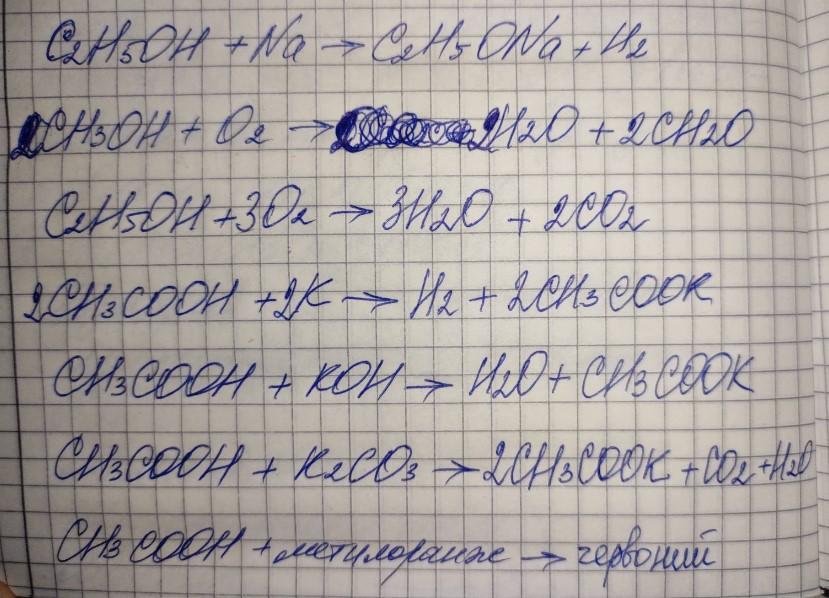 C2H5OH + Na → C2H5ONa + H2
2CH3OH + O2 → 2H2O + 2CH2O
C2H5OH + 3O2 → 3H2O + 2CO2
2CH3COOH + 2K → H2 + 2CH3COOK
CH3COOH + KOH → H2O + CH3COOK
CH3COOH + K2CO3 → 2CH3COOK + CO2 + H2O
CH3COOH + метилоранж → червоний